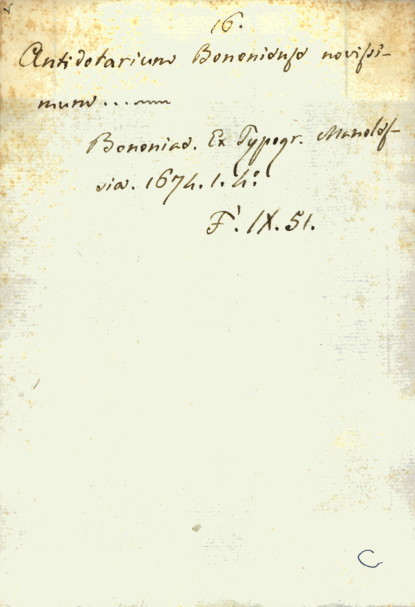 16.
Antidotarium Bononiense novissi-
mum...
Bononiae. Ex Typogr. Manoles-
siae. 1674. 1. 4°
F'. IX. 51.
C